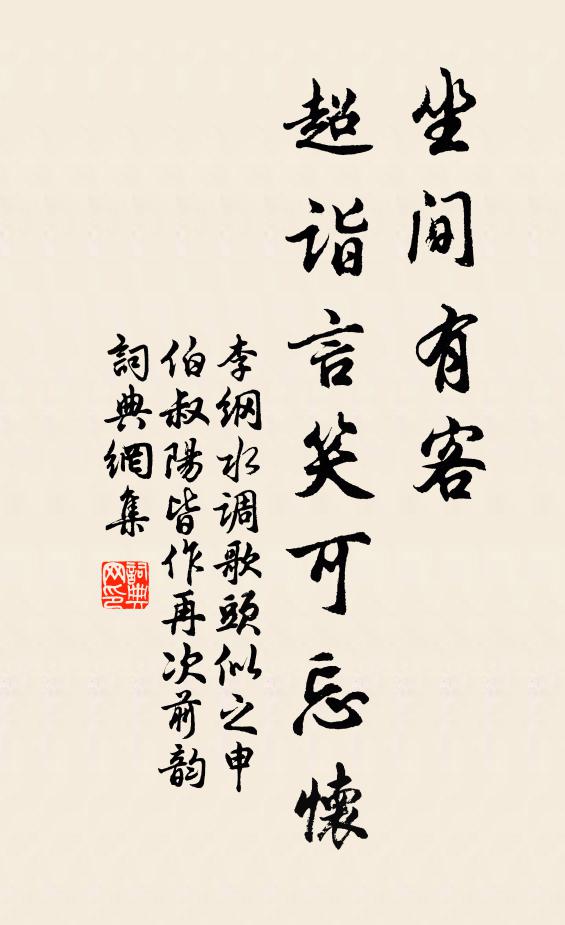 坐间有客
超诣言笑可忘懷
李纲水调歌頭似之申
伯叔陽皆作再次前韵
詞典網集
詞典网印